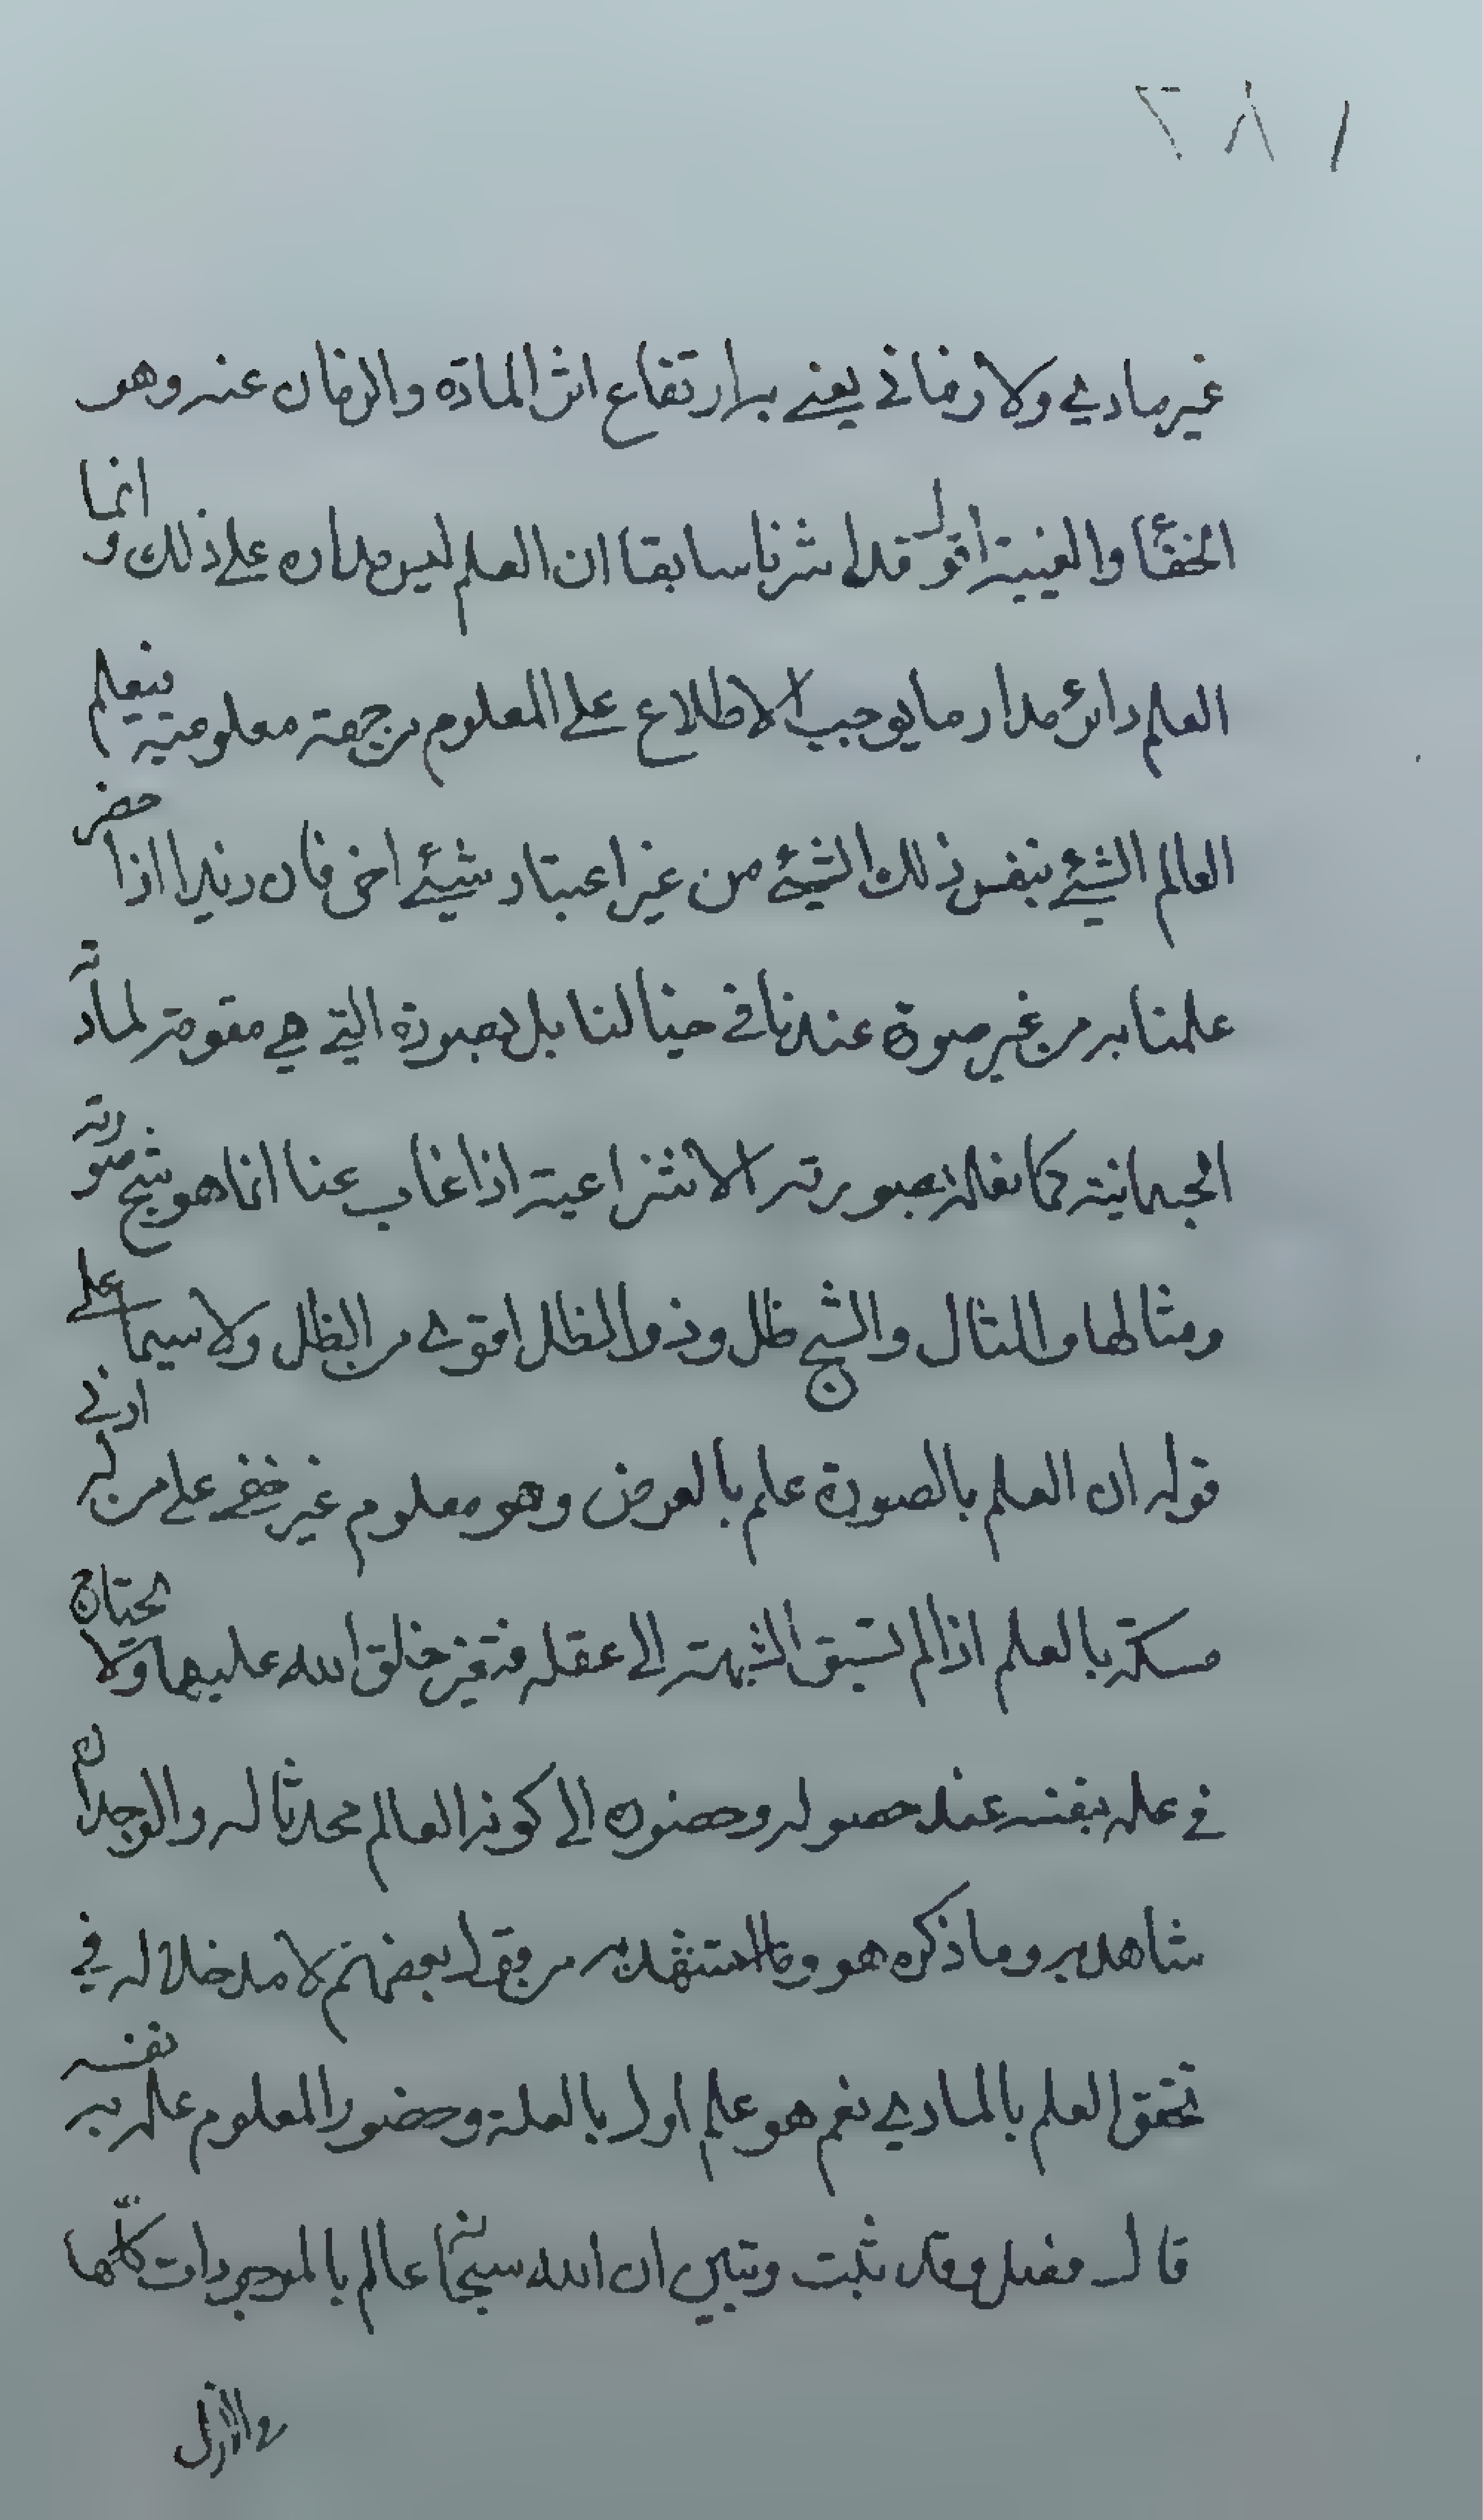 ١٨٢
غير مادي ولا زماني يعني به ارتفاع اثر المادة والزمان عنه وهو
الخفاء والغيبة اقول قد اشرنا سابقا ان العلم ليس مداره على ذلك وانما
العلم دائر مدار ما يوجب الاطلاع على المعلوم من جهة معلوميته فيعلم
العالم الشئ بنفس ذلك الشئ من غير اعتبار شئ اخر فان زيدا اذا حضر
علمنا به من غير صورة عندنا في خيالنا بل بصورة التي هي مقومة لمادته
الجسمانية كما نعلمه بصورته الانتزاعية اذا غاب عنا انما هو شبح صورته
ومثالها والمثال والشبح ظل وذو الظل اقوى من الظل ولا سيما على
قوله ان العلم بالصورة علم بالعرض وهو معلوم غير خفي على من له ادنى
مسكة بالعلم اذا لم تسبق الشبهة الى عقله فتغير خلق الله عليها ولا يحتاج
في علمه بنفسه عند حصوله وحضوره الى كونه العالم محدثا له والوجدان
شاهد به وما ذكره هو وما استشهد به من قول بعضهم لا مدخل له في
تحقق العلم بالمادي نعم هو علم اول بالعلة وحضور المعلوم علمه به نفسه
قال فصل وقد ثبت وتبين ان الله سبحانه عالم بالموجودات كلها
والازل